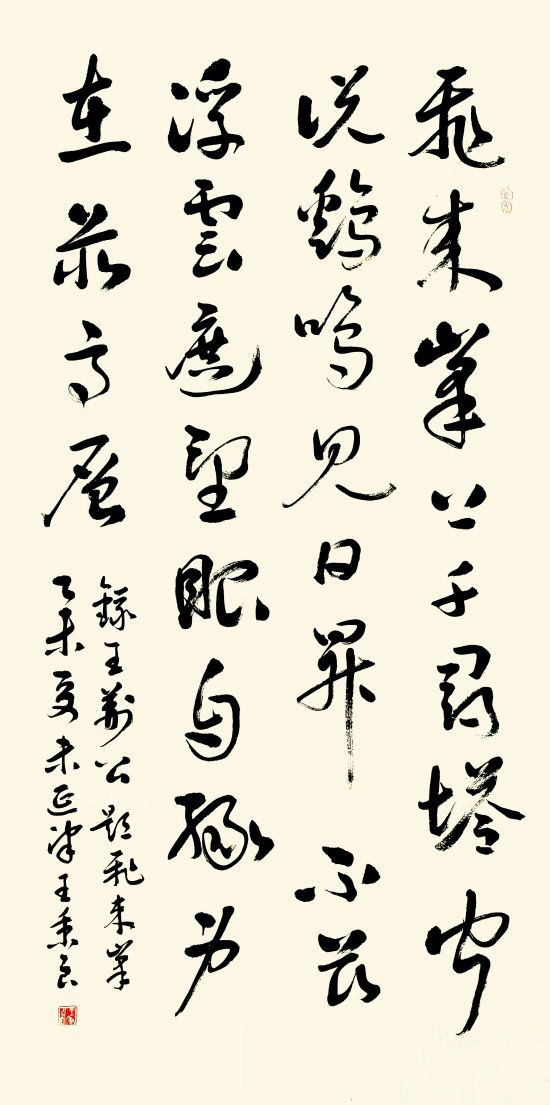 飛来峯上千尋塔聞
説鷄鳴見日昇不畏
浮雲遮望眼自緣身
在最高層
錄王荊公題飛来峯
乙未夏末延津王秉良